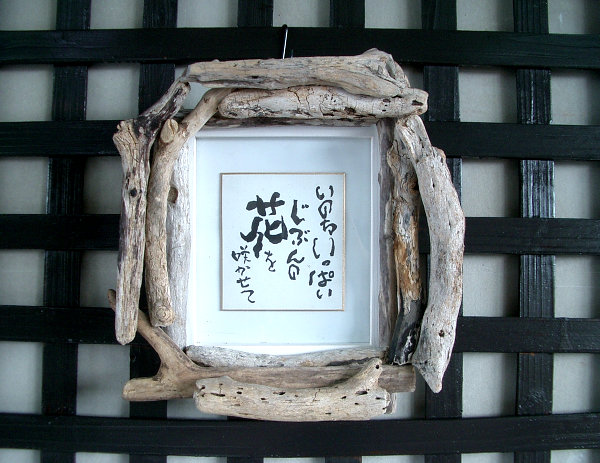 いのちいっぱい
じぶんの
花を
咲かせて